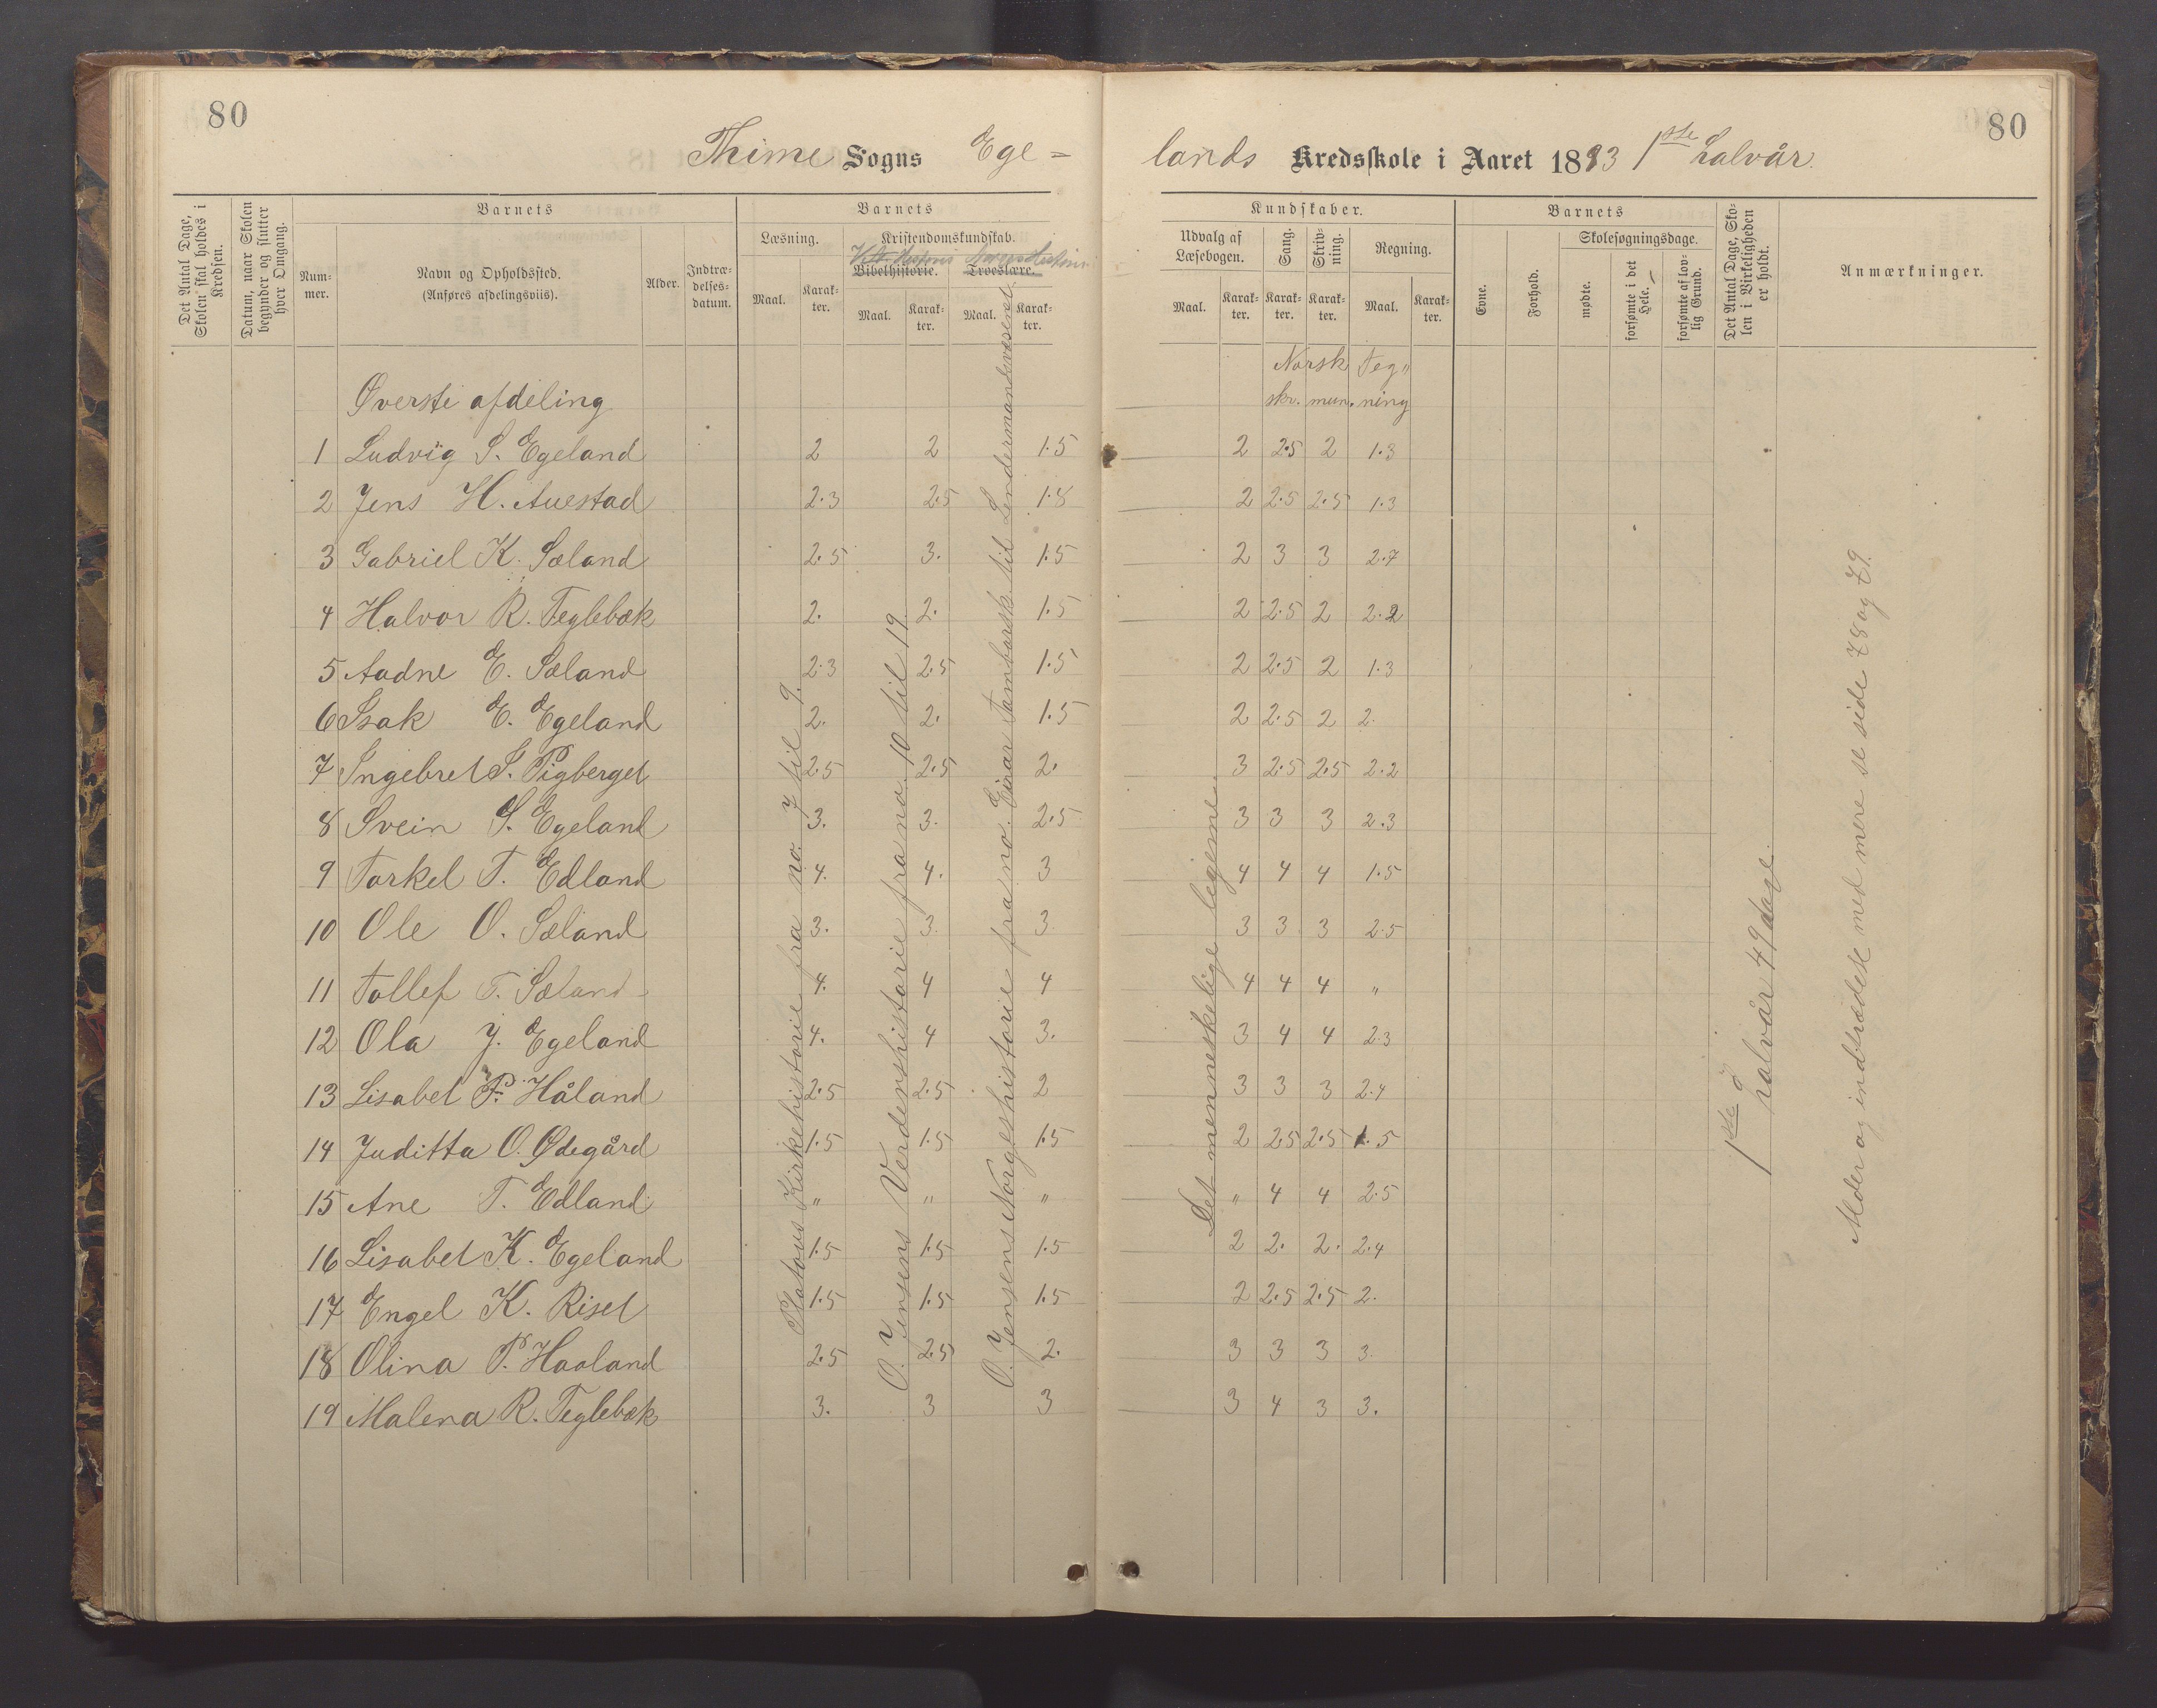 80
80
Thime Sogns Ege=
lands Kredsskole i Aaret 1883 1ste halvår.
Det Antal Dage, Skolen skal holdes i Kredsen.
Datum, naar Skolen begynder og slutter hver Omgang.
Barnets
Num-mer.
Navn og Opholdssted.
(Anføres afdelingsviis).
Alder.
Indtræ-delses-datum.
Barnets
Læsning.
Maal.
Karak-ter.
Kristendomskundskab.
Historie Norges Historie
Bibelhistorie.
Troeslære.
Maal.
Karak-ter.
Maal.
Karak-ter.
Kundskaber.
Udvalg af Læsebogen.
Sang.
Skriv-ning.
Regning.
Maal.
Karak-ter.
Karak-ter.
Karak-ter.
Maal.
Karak-ter.
Barnets
Evne.
Forhold.
Skolesøgningsdage.
mødte.
forsømte i det Hele.
forsømte af lov-lig Grund.
Det Antal Dage, Sko-len i Virkeligheden er holdt.
Anmærkninger.
Norsk Teg"
skr. mun. ning
Øverste afdeling
1 Ludvig S. Egeland 2 2 1.5 2 2.5 2 1.3
2 Jens H. Auestad 2.3 2.5 1.8 2 2.5 2.5 1.3
3 Gabriel K. Sæland 2.5 3. 1.5 2 3 3 2.7
4 Halvor R. Teglebæk 2. 2. 1.5 2 2.5 2 2.2
5 Aadne E. Sæland 2.3 2.5 1.5 2 2.5 2 1.3
6 Isak E. Egeland 2. 2. 1.5 2 2.5 2 2.
7 Ingebret S. Pigberget 2.5 2.5 2. 3 2.5 2.5 2.2
8 Svein S. Egeland 3. 3. 2.5 3 3 3 2.3
9 Torkel T. Edland 4. 4. 3 4 4 4 1.5
10 Ole O. Sæland 3. 3. 3 3 3 3 2.5
11 Tollef T. Sæland 4. 4 4 4 4 4 "
12 Ola J. Egeland 4. 4 3. 3 4 4 2.3
13 Lisabet P. Håland 2.5 2.5 2 3 3 3 2.4
14 Juditta O. Ødegård 1.5 1.5 1.5 2 2.5 2.5 1.5
15 Ane T. Edland " " " " 4 4 2.5
16 Lisabet K. Egeland 1.5 1.5 1.5 2 2. 2. 2.4
17 Engel K. Riset 1.5 1.5 1.5 2 2.5 2.5 2.
18 Olina P. Haaland 2.5 2.5 2. 3 3 3 3.
19 Malena R. Teglebæk 3. 3 3 3 4 3 3.
Platous Kirkehistorie fra no. 7 til 9.
O. Jensens Verdenshistorie fra no. 10 til 19.
O. Jensens Norgeshistorie fra no. Einar Tambarsk. til Lendermandsvæsenet.
Det menneskelige legeme.
1ste halvår 49 dage.
Alder og indtrædelse med mere se side 78 og 79.